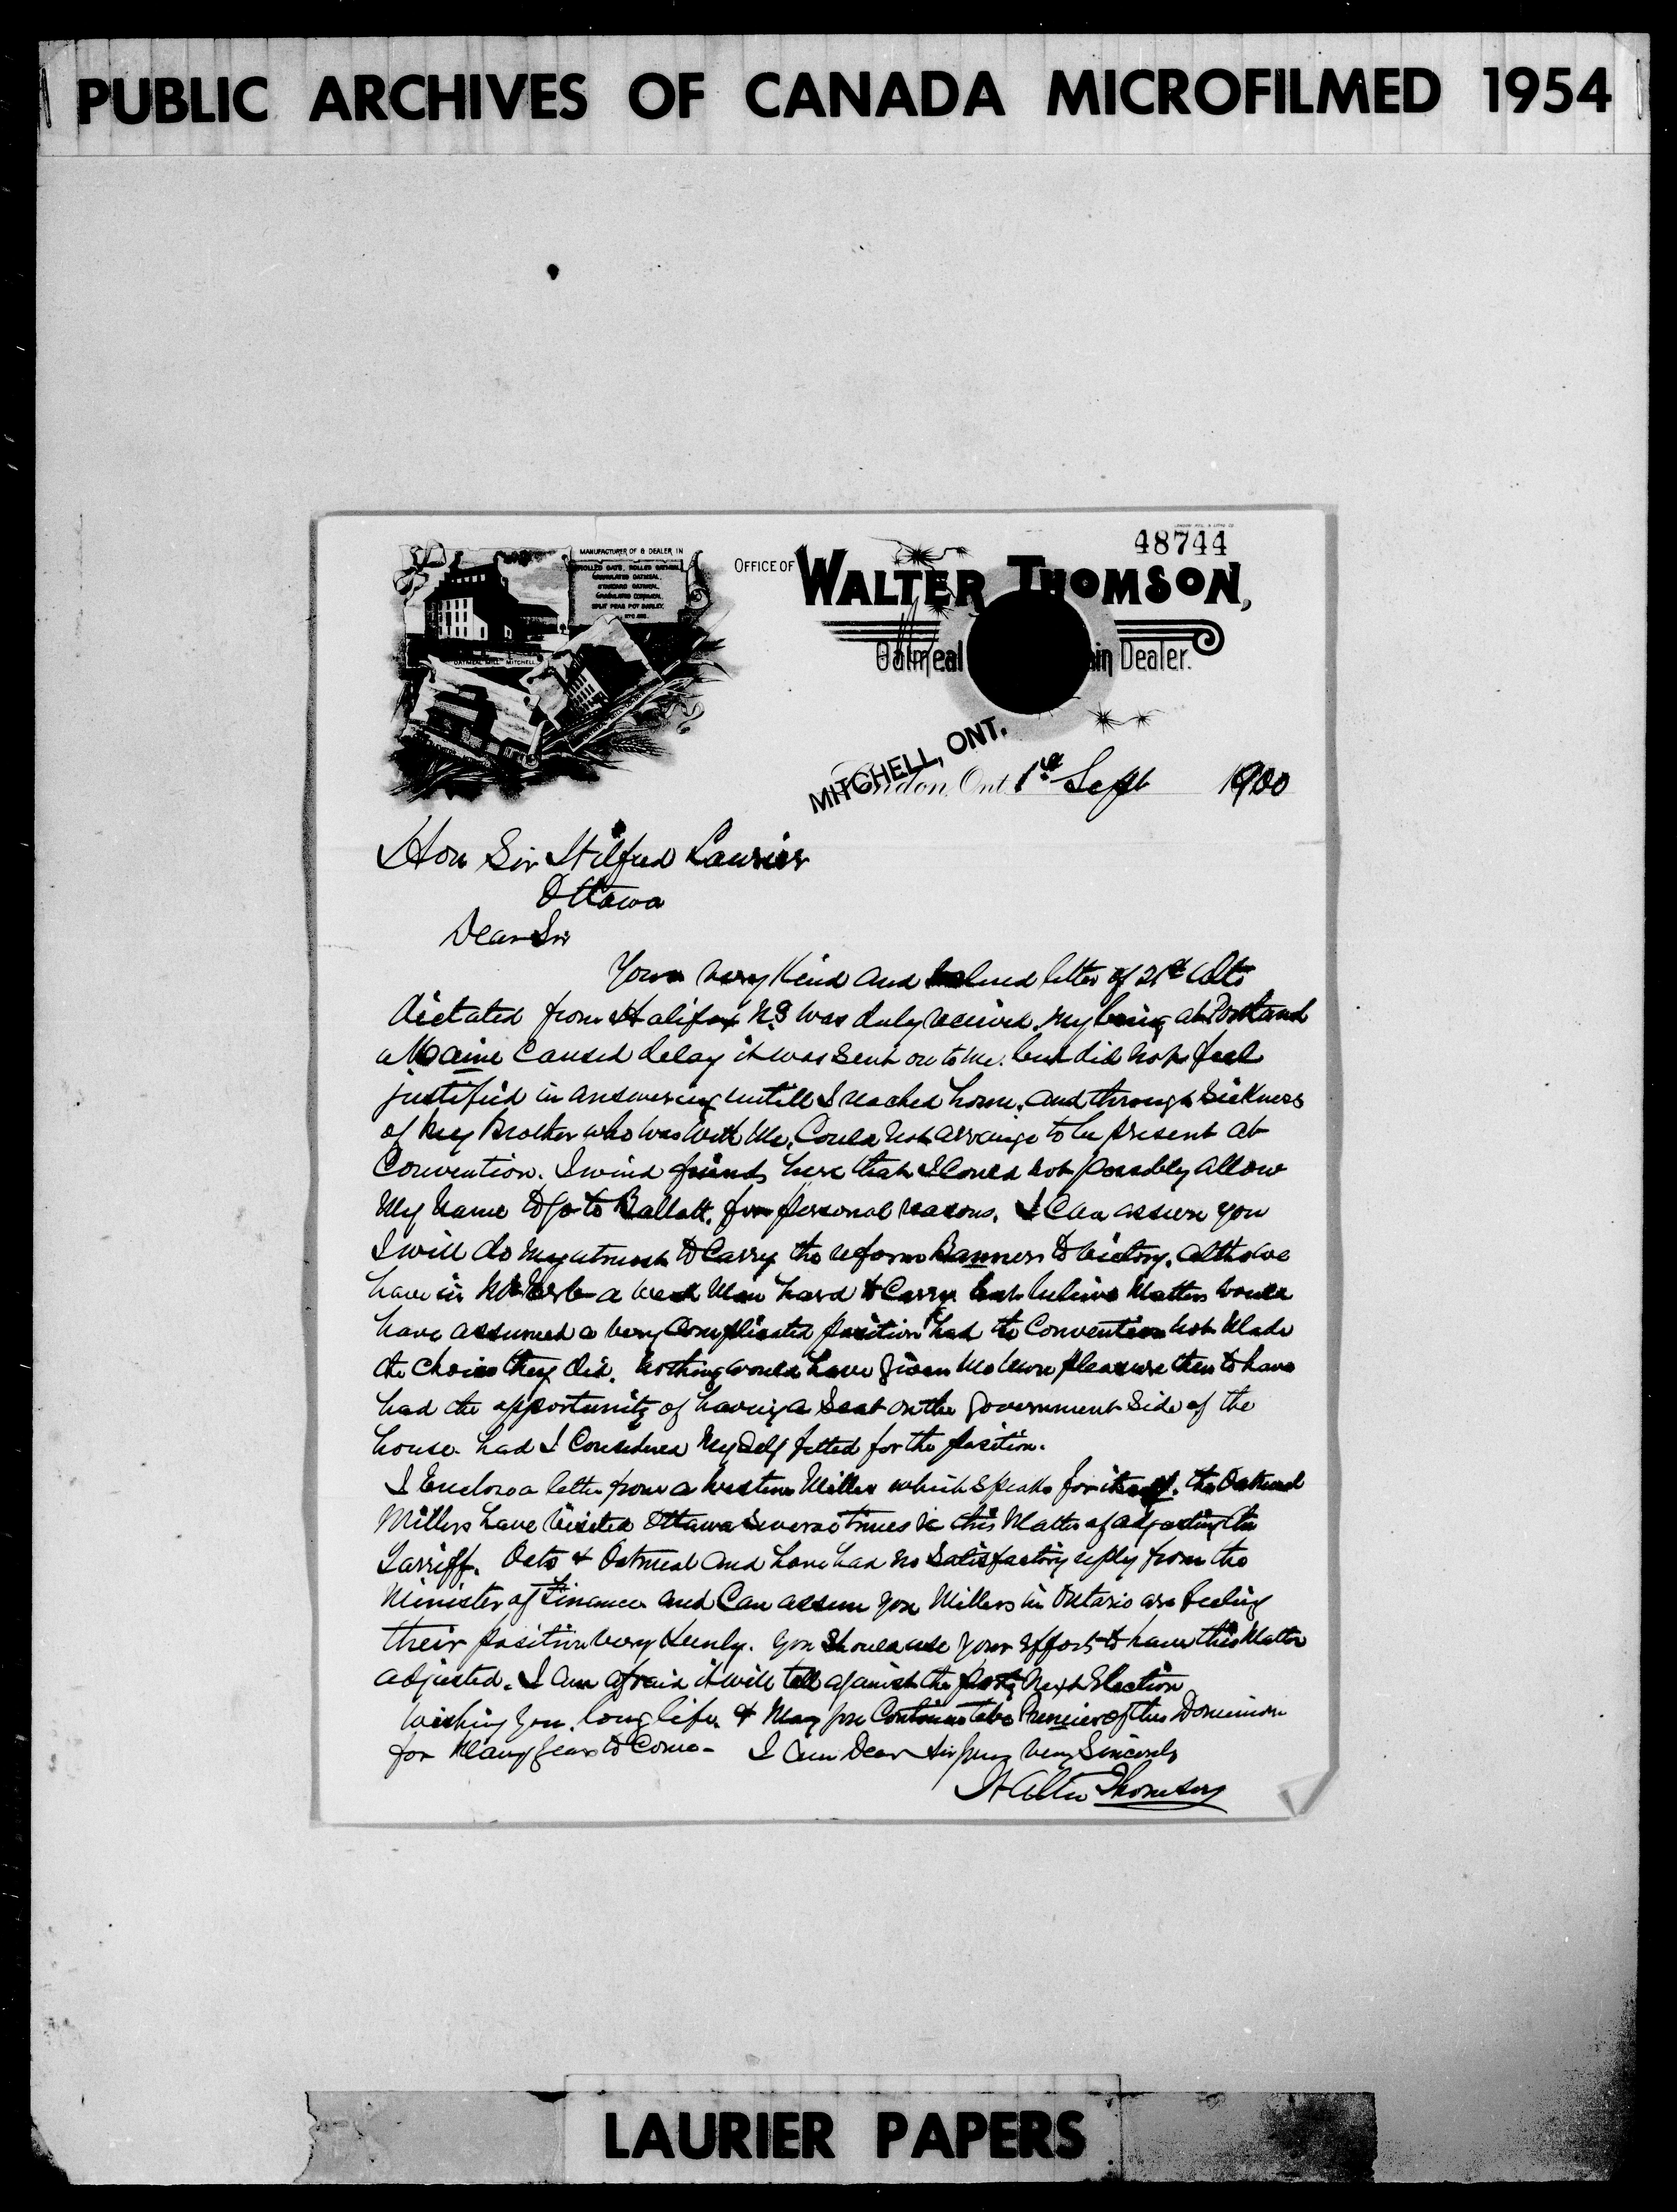 PUBLIC ARCHIVES OF CANADA MICROFILMED 1954
48744
MANUFACTURER OF & DEALER IN
ROLLED OATS, ROLLED OATMEAL,
GRANULATED OATMEAL,
STANDARD OATMEAL,
GRANULATED CORNMEAL,
SPLIT PEAS POT BARLEY,
ETC. ETC.
OATMEAL MILL MITCHELL
OFFICE OF WALTER THOMSON,
Oatmeal in Dealer.
MITCHELL, ONT.
London, Ont. 1st Sept 1900
Hon Sir Wilfred Laurier
Ottawa
Dear Sir
Your very Kind and valued letter of 21st Ulto
dictated from Halifax N.S was duly received. My being at Portland
Maine Caused delay it was sent on to me. but did not feel
justified in answering untill I reached home. and through Sickness
of my Brother who was with Me. Could not arrange to be present at
Convention. I wired friends here that I Could not possibly allow
My Name to go to Ballott. for personal reasons. I Can assure you
I will do my utmost to Carry the reform Banners to Victory. altho we
have in a weak Man hard to Carry but believe Matters would
have assumed a very Complicated position had the Convention not Made
the choice they did. Nothing would have given Me More pleasure then to have
had the opportunity of having a Seat on the Government Side of the
house. had I Considered Myself fitted for the position.
I Enclose a letter from a western Miller which speaks for itself. the Oatmeal
Millers have visited Ottawa Several times in this Matter of adjusting the
Tarriff. Oats & Oatmeal and have had no Satisfactory reply from the
Minister of Finance and Can assure you Millers in Ontario are feeling
their position very Keenly. You Should use your Effort to have this Matter
adjusted. I am afraid it will tell against the party Next Election
Wishing you long life & May you Continue to be Premier of this Dominion
for Many years to Come - I am Dear Sir yours very Sincerely
Walter Thomson
LAURIER PAPERS